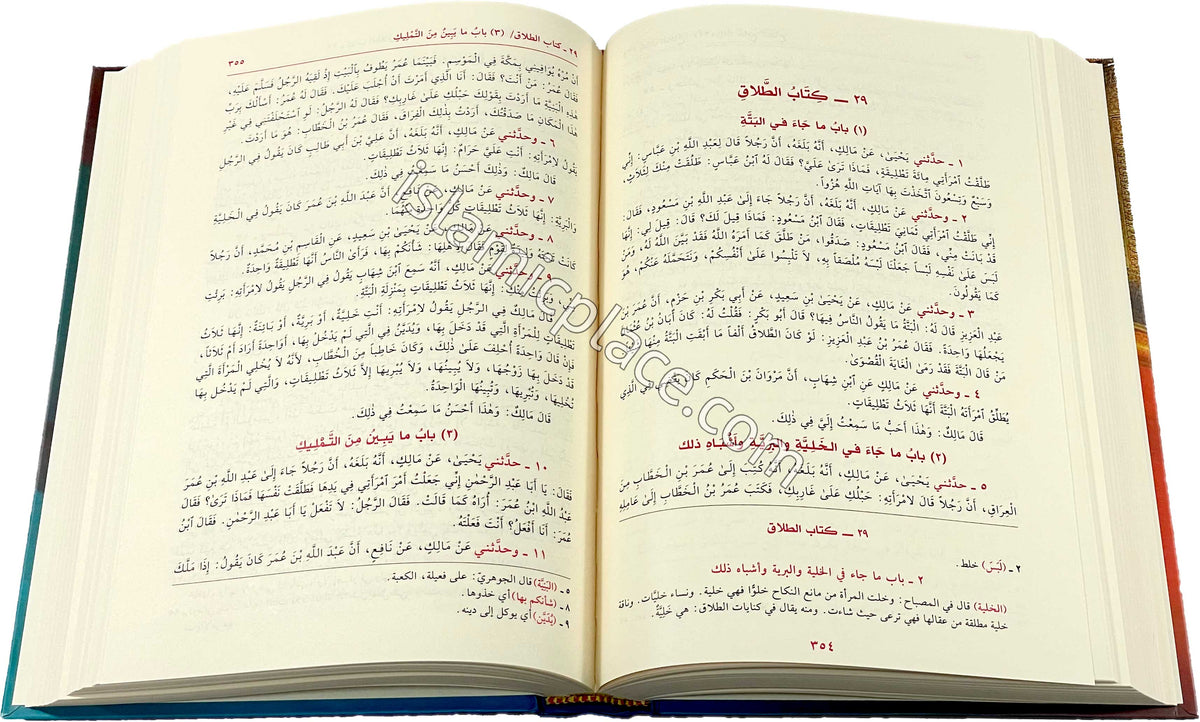 ٢٩ ــ كِتَابُ الطَّلَاقِ
(١) بابُ ما جَاءَ في البَتَّة
١ ـ حدّثني يَحْيَىٰ، عَنْ مَالِكٍ، أَنَّهُ بَلَغَهُ، أَنَّ رَجُلاً قَالَ لِعَبْدِ اللَّهِ بْنِ عَبَّاسٍ: إِنِّي
طَلَّقْتُ ٱمْرَأَتِي مِائَةَ تَطْلِيقَةٍ، فَمَاذَا تَرَىٰ عَلَيَّ؟ فَقَالَ لَهُ ٱبْنُ عَبَّاسٍ: طَلُقَتْ مِنْكَ لِثَلَاثٍ،
وَسَبْعٌ وَتِسْعُونَ ٱتَّخَذْتَ بِهَا آيَاتِ اللَّهِ هُزُواً.
٢ ـ وحدّثني عَنْ مَالِكٍ، أَنَّهُ بَلَغَهُ، أَنَّ رَجُلاً جَاءَ إِلَىٰ عَبْدِ اللَّهِ بْنِ مَسْعُودٍ، فَقَالَ:
إِنِّي طَلَّقْتُ ٱمْرَأَتِي ثَمَانِيَ تَطْلِيقَاتٍ، فَقَالَ ٱبْنُ مَسْعُودٍ: فَمَاذَا قِيلَ لَكَ؟ قَالَ: قِيلَ لِي: إِنَّهَا
قَدْ بَانَتْ مِنِّي، فَقَالَ ٱبْنُ مَسْعُودٍ: صَدَقُوا، مَنْ طَلَّقَ كَمَا أَمَرَهُ اللَّهُ فَقَدْ بَيَّنَ اللَّهُ لَهُ، وَمَنْ
لَبَسَ عَلَىٰ نَفْسِهِ لَبْساً جَعَلْنَا لَبْسَهُ مُلْصَقاً بِهِ، لَا تَلْبِسُوا عَلَىٰ أَنْفُسِكُمْ، وَنَتَحَمَّلَهُ عَنْكُمْ، هُوَ
كَمَا يَقُولُونَ.
٣ ـ وحدّثني عَنْ مَالِكٍ، عَنْ يَحْيَىٰ بْنِ سَعِيدٍ، عَنْ أَبِي بَكْرِ بْنِ حَزْمٍ، أَنَّ عُمَرَ بْنَ
عَبْدِ الْعَزِيزِ قَالَ لَهُ: الْبَتَّةُ مَا يَقُولُ النَّاسُ فِيهَا؟ قَالَ أَبُو بَكْرٍ: فَقُلْتُ لَهُ: كَانَ أَبَانُ بْنُ عُثْمَانَ
يَجْعَلُهَا وَاحِدَةً. فَقَالَ عُمَرُ بْنُ عَبْدِ الْعَزِيزِ: لَوْ كَانَ الطَّلَاقُ أَلْفاً مَا أَبْقَتِ الْبَتَّةُ مِنْهَا شَيْئاً
مَنْ قَالَ الْبَتَّةَ فَقَدْ رَمَىٰ الْغَايَةَ الْقُصْوَىٰ.
٤ ـ وحدّثني عَنْ مَالِكٍ عَنِ ٱبْنِ شِهَابٍ، أَنَّ مَرْوَانَ بْنَ الْحَكَمِ كَانَ يَقْضِي فِي الَّذِي
يُطَلِّقُ ٱمْرَأَتَهُ الْبَتَّةَ أَنَّهَا ثَلَاثُ تَطْلِيقَاتٍ.
قَالَ مَالِكٌ: وَهٰذَا أَحَبُّ مَا سَمِعْتُ إِلَيَّ فِي ذٰلِكَ.
(٢) بابُ ما جَاءَ في الخَلِيَّةِ والبريَّة وأشْباهِ ذلك
٥ ـ حدّثني يَحْيَىٰ، عَنْ مَالِكٍ، أَنَّهُ بَلَغَهُ، أَنَّهُ كُتِبَ إِلَىٰ عُمَرَ بْنِ الْخَطَّابِ مِنَ
الْعِرَاقِ، أَنَّ رَجُلاً قَالَ لامْرَأَتِهِ: حَبْلُكِ عَلَىٰ غَارِبِكِ، فَكَتَبَ عُمَرُ بْنُ الْخَطَّابِ إِلَىٰ عَامِلِهِ
٢٩ ــ كتاب الطلاق
٢ ـ (لَبَسَ) خلط.
٢ ـ باب ما جاء في الخلية والبرية وأشباه ذلك
(الخلية) قال في المصباح: وخلت المرأة من مانع النكاح خلوًّا فهي خلية. ونساء خليَّات. وناقة
خلية مطلقة من عقالها فهي ترعى حيث شاءت. ومنه يقال في كنايات الطلاق: هي خَلِيَّةٌ.
٣٥٤
٢٩ ـ كتاب الطلاق/ (٣) بابُ ما يَبِينُ مِنَ التَّمْلِيكِ
٣٥٥
أَنْ مُرْهُ يُوَافِينِي بِمَكَّةَ فِي الْمَوْسِمِ. فَبَيْنَمَا عُمَرُ يَطُوفُ بِٱلْبَيْتِ إِذْ لَقِيَهُ الرَّجُلُ فَسَلَّمَ عَلَيْهِ،
فَقَالَ عُمَرُ: مَنْ أَنْتَ؟ فَقَالَ: أَنَا الَّذِي أَمَرْتَ أَنْ أُجْلَبَ عَلَيْكَ. فَقَالَ لَهُ عُمَرُ: أَسْأَلُكَ بِرَبِّ
هٰذِهِ الْبَنِيَّةِ مَا أَرَدْتَ بِقَوْلِكَ حَبْلُكِ عَلَىٰ غَارِبِكِ؟ فَقَالَ لَهُ الرَّجُلُ: لَوِ ٱسْتَحْلَفْتَنِي فِي غَيْرِ
هٰذَا الْمَكَانِ مَا صَدَقْتُكَ، أَرَدْتُ بِذٰلِكَ الْفِرَاقَ، فَقَالَ عُمَرُ بْنُ الْخَطَّابِ: هُوَ مَا أَرَدْتَ.
٦ ـ وحدّثني عَنْ مَالِكٍ، أَنَّهُ بَلَغَهُ، أَنَّ عَلِيَّ بْنَ أَبِي طَالِبٍ كَانَ يَقُولُ فِي الرَّجُلِ
يَقُولُ لامْرَأَتِهِ: أَنْتِ عَلَيَّ حَرَامٌ: إِنَّهَا ثَلَاثُ تَطْلِيقَاتٍ.
قَالَ مَالِكٌ: وَذٰلِكَ أَحْسَنُ مَا سَمِعْتُ فِي ذٰلِكَ.
٧ ـ وحدّثني عَنْ مَالِكٍ، عَنْ نَافِعٍ، أَنَّ عَبْدَ اللَّهِ بْنَ عُمَرَ كَانَ يَقُولُ فِي الْخَلِيَّةِ
وَالْبَرِيَّةِ: إِنَّهَا ثَلَاثُ تَطْلِيقَاتٍ كُلُّ وَاحِدَةٍ مِنْهُمَا.
٨ ـ وحدّثني عَنْ مَالِكٍ، عَنْ يَحْيَىٰ بْنِ سَعِيدٍ، عَنِ الْقَاسِمِ بْنِ مُحَمَّدٍ، أَنَّ رَجُلاً
كَانَتْ تَحْتَهُ وَلِيدَةٌ لِقَوْمٍ فَقَالَ لأَهْلِهَا: شَأْنَكُمْ بِهَا، فَرَأَىٰ النَّاسُ أَنَّهَا تَطْلِيقَةٌ وَاحِدَةٌ.
٩ ـ وحدّثني عَنْ مَالِكٍ، أَنَّهُ سَمِعَ ٱبْنَ شِهَابٍ يَقُولُ فِي الرَّجُلِ يَقُولُ لامْرَأَتِهِ: بَرِئْتِ
مِنِّي، وَبَرِئْتُ مِنْكِ: إِنَّهَا ثَلَاثُ تَطْلِيقَاتٍ بِمَنْزِلَةِ الْبَتَّةِ.
قَالَ مَالِكٌ فِي الرَّجُلِ يَقُولُ لامْرَأَتِهِ: أَنْتِ خَلِيَّةٌ، أَوْ بَرِيَّةٌ، أَوْ بَائِنَةٌ: إِنَّهَا ثَلَاثُ
تَطْلِيقَاتٍ لِلْمَرْأَةِ الَّتِي قَدْ دَخَلَ بِهَا، وَيُدَيَّنُ فِي الَّتِي لَمْ يَدْخُلْ بِهَا، أَوَاحِدَةً أَرَادَ أَمْ ثَلَاثاً،
فَإِنْ قَالَ وَاحِدَةً أُحْلِفَ عَلَىٰ ذٰلِكَ، وَكَانَ خَاطِباً مِنَ الْخُطَّابِ، لأَنَّهُ لَا يُخْلِي الْمَرْأَةَ الَّتِي
قَدْ دَخَلَ بِهَا زَوْجُهَا، وَلَا يُبِينُهَا، وَلَا يُبْرِيهَا إِلاَّ ثَلَاثُ تَطْلِيقَاتٍ، وَالَّتِي لَمْ يَدْخُلْ بِهَا
تُخْلِيهَا، وَتُبْرِيهَا، وَتُبِينُهَا الْوَاحِدَةُ.
قَالَ مَالِكٌ: وَهٰذَا أَحْسَنُ مَا سَمِعْتُ فِي ذٰلِكَ.
(٣) بابُ ما يَبِينُ مِنَ التَّمْلِيكِ
١٠ ـ حدّثني يَحْيَىٰ، عَنْ مَالِكٍ، أَنَّهُ بَلَغَهُ، أَنَّ رَجُلاً جَاءَ إِلَىٰ عَبْدِ اللَّهِ بْنِ عُمَرَ
فَقَالَ: يَا أَبَا عَبْدِ الرَّحْمٰنِ إِنِّي جَعَلْتُ أَمْرَ ٱمْرَأَتِي فِي يَدِهَا فَطَلَّقَتْ نَفْسَهَا فَمَاذَا تَرَىٰ؟ فَقَالَ
عَبْدُ اللَّهِ ابْنُ عُمَرَ: أُرَاهُ كَمَا قَالَتْ. فَقَالَ الرَّجُلُ: لَا تَفْعَلْ يَا أَبَا عَبْدِ الرَّحْمٰنِ. فَقَالَ ٱبْنُ
عُمَرَ: أَنَا أَفْعَلُ؟ أَنْتَ فَعَلْتَهُ.
١١ ـ وحدّثني عَنْ مَالِكٍ، عَنْ نَافِعٍ، أَنَّ عَبْدَ اللَّهِ بْنَ عُمَرَ كَانَ يَقُولُ: إِذَا مَلَّكَ
٥ ـ (البَنِيَّة) قال الجوهريّ: على فعيلة، الكعبة.
٨ ـ (شأنكم بها) أي خذوها.
٩ ـ (يُدَيَّن) أي يوكل إلى دينه.
islamicplace.com